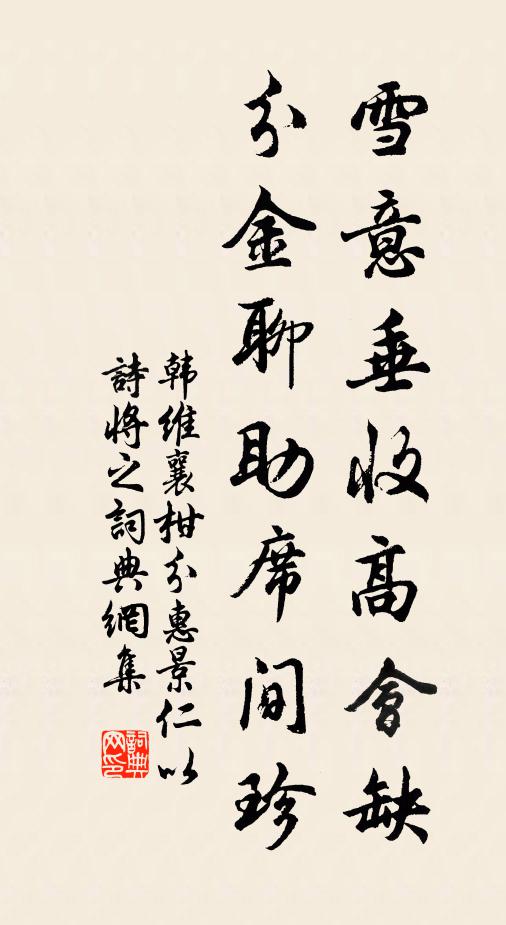 雪意垂收高會缺
分金聊助席間珍
韩維襄柑分惠景仁以
詩將之詞典網集
詞典网印